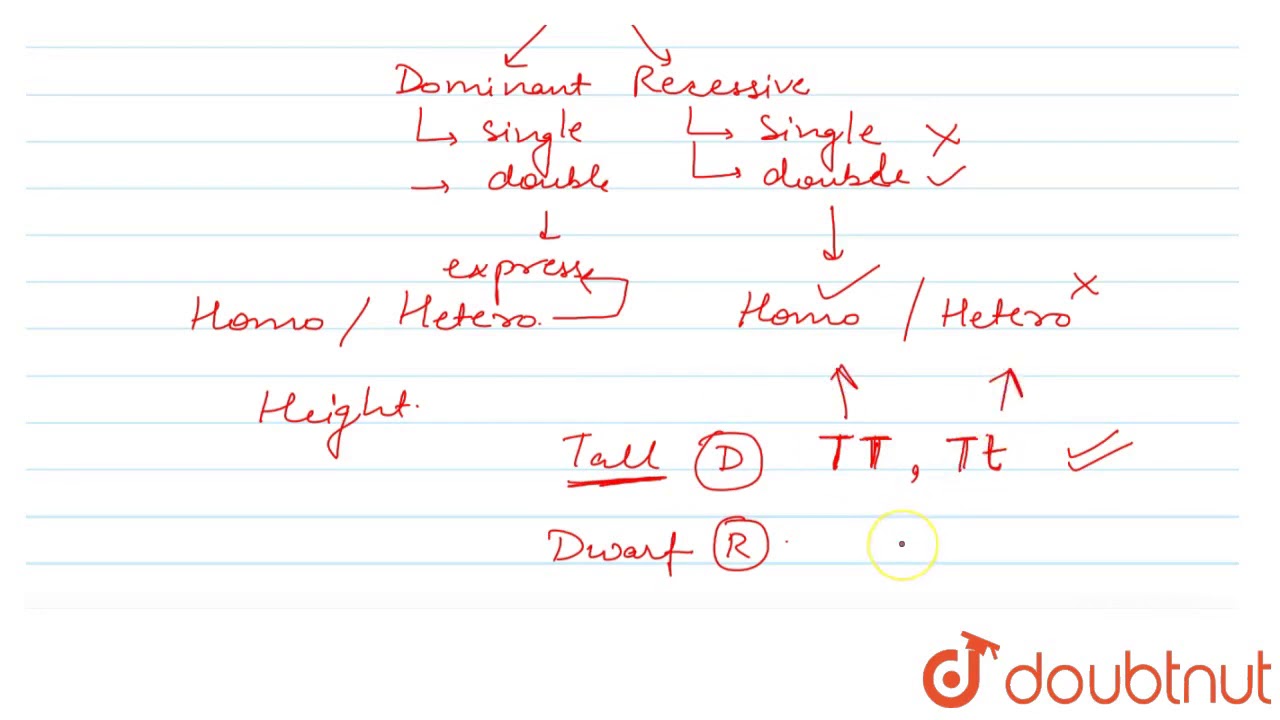 Dominant Recessive
↳ single ↳ single ✗
→ double ↳ double ✓
express
Homo / Hetero. Homo ✓ / Hetero ✗
Height.
Tall D TT, Tt ✓
Dwarf R .
doubtnut